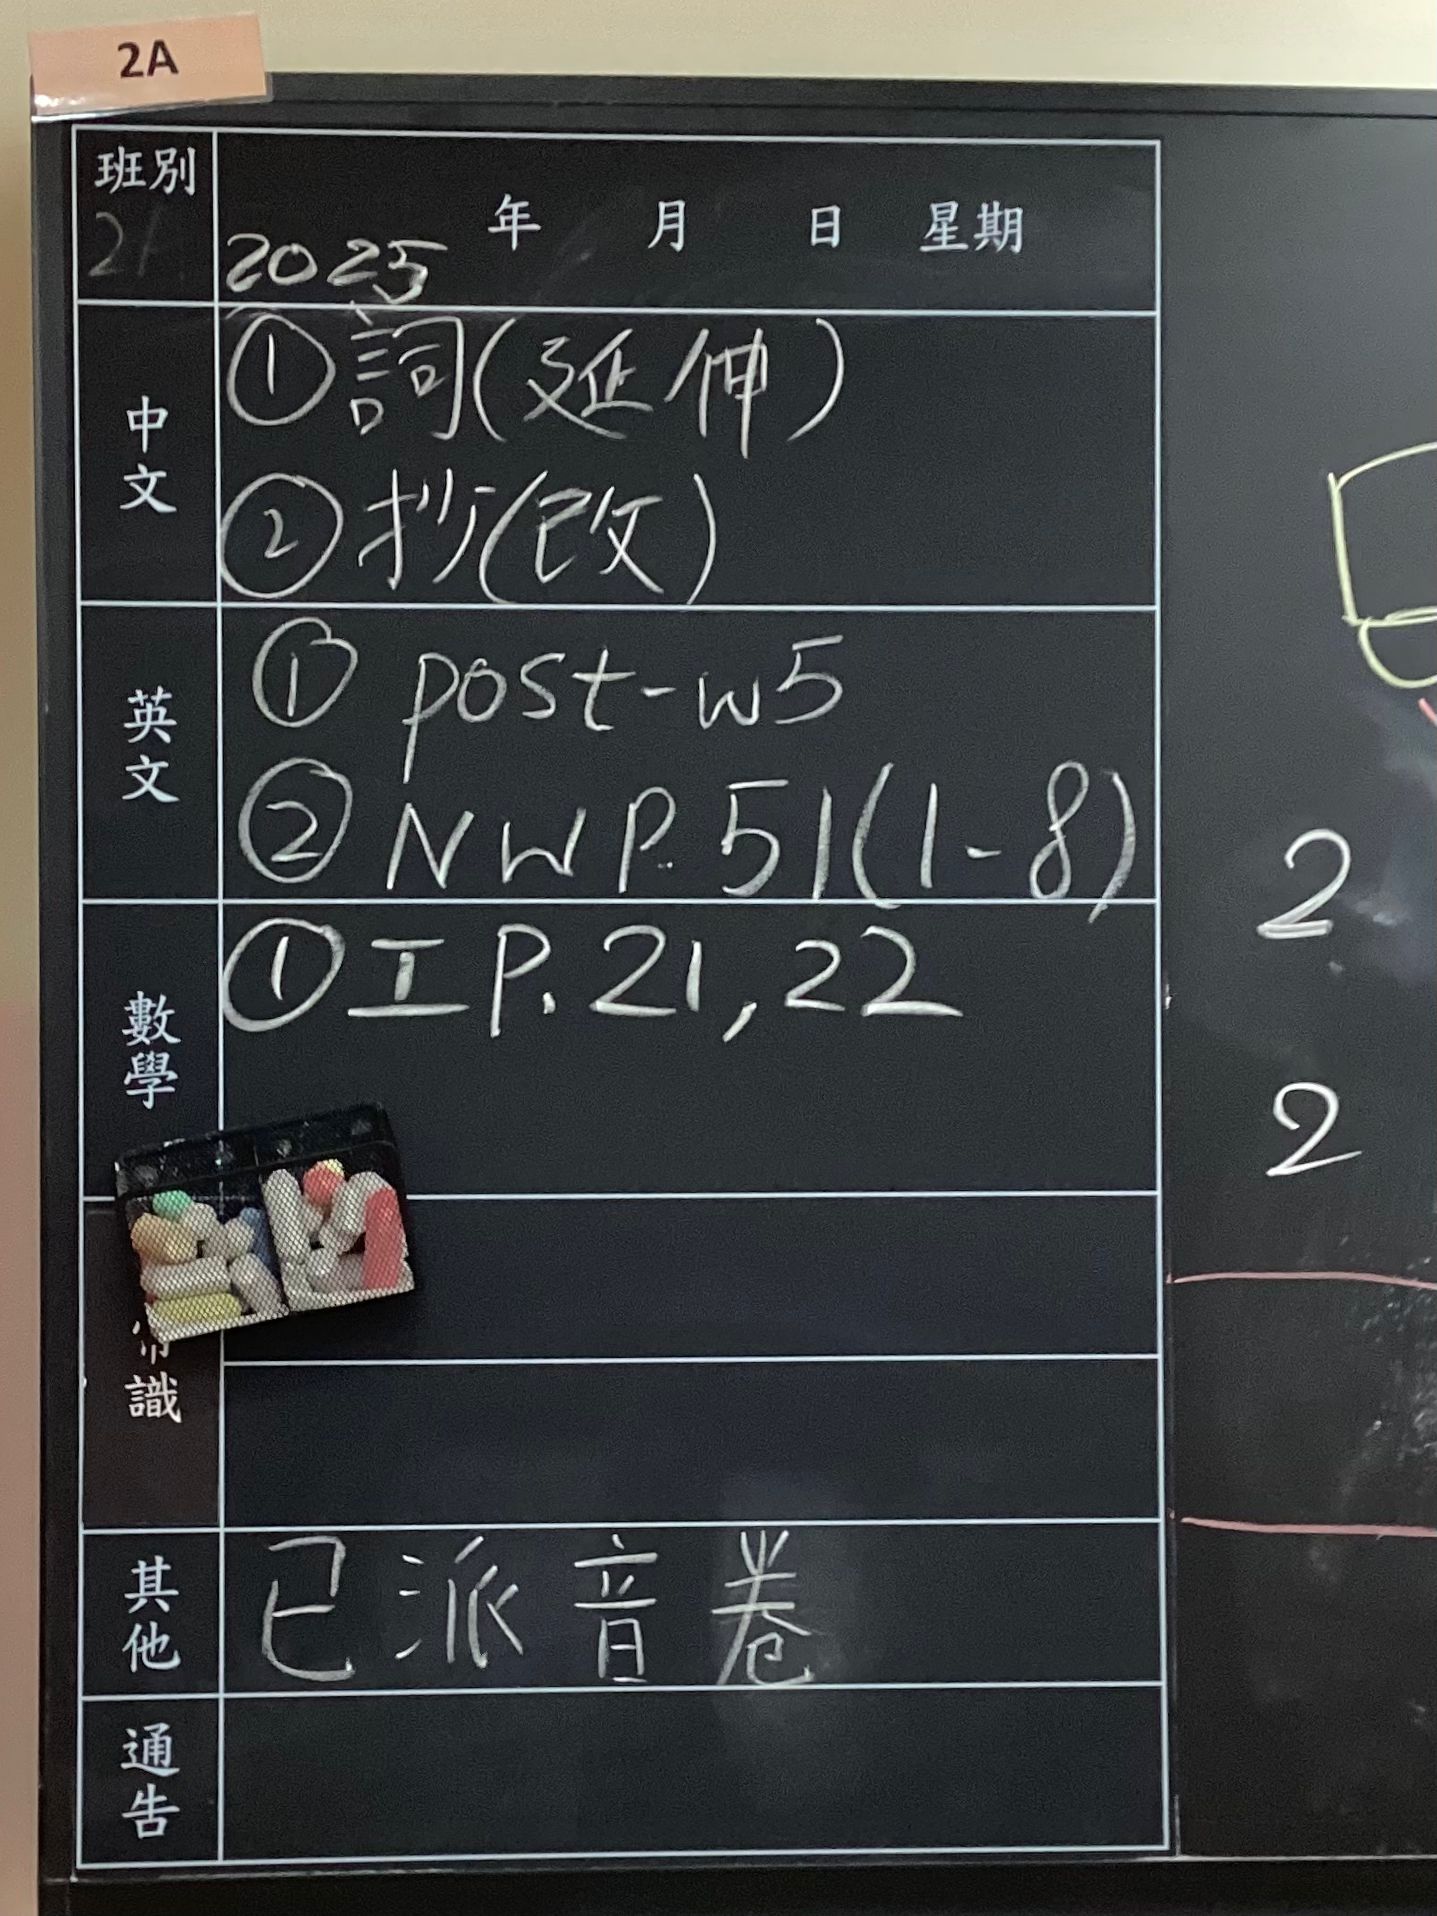 2A
班別
年 月 日 星期
2025
中文
①詞(延伸)
②抄(改)
英文
① post-w5
② NWP.51(1-8)
數學
①工P.21,22
2
2
常識
其他
已派音卷
通告